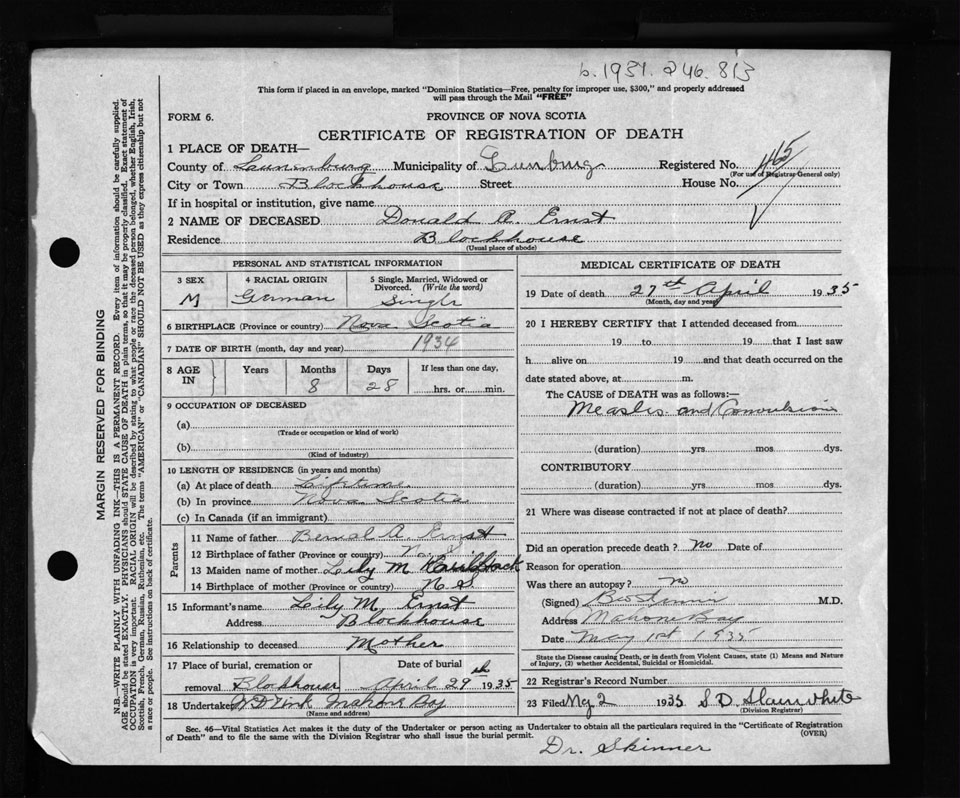 b. 1931. 246. 813
This form if placed in an envelope, marked "Dominion Statistics—Free, penalty for improper use, $300," and properly addressed
will pass through the Mail "FREE"
FORM 6.
PROVINCE OF NOVA SCOTIA
CERTIFICATE OF REGISTRATION OF DEATH
MARGIN RESERVED FOR BINDING
N.B.—WRITE PLAINLY WITH UNFADING INK—THIS IS A PERMANENT RECORD. Every item of information should be carefully supplied.
AGE should be stated EXACTLY. PHYSICIANS should STATE CAUSE OF DEATH in plain terms, so that it may be properly classified. Exact statement of
OCCUPATION is very important. RACIAL ORIGIN will be described by stating to what people or race the deceased person belonged, whether English, Irish,
Scottish, French, German, Russian, Ruthenian, etc. The terms "AMERICAN" or "CANADIAN" SHOULD NOT BE USED as they express citizenship but not
a race or people. See instructions on back of certificate.
1 PLACE OF DEATH—
County of Lunenburg Municipality of Lunburg Registered No. 465
(For use of Registrar General only)
City or Town Blockhouse Street House No.
If in hospital or institution, give name
2 NAME OF DECEASED Donald A. Ernst
Residence Blockhouse
(Usual place of abode)
PERSONAL AND STATISTICAL INFORMATION
3 SEX 4 RACIAL ORIGIN 5 Single, Married, Widowed or
Divorced. (Write the word)
M German Single
6 BIRTHPLACE (Province or country) Nova Scotia
7 DATE OF BIRTH (month, day and year) 1934
8 AGE IN Years Months Days If less than one day,
8 28 hrs. or min.
9 OCCUPATION OF DECEASED
(a)
(Trade or occupation or kind of work)
(b)
(Kind of industry)
10 LENGTH OF RESIDENCE (in years and months)
(a) At place of death Lifetime
(b) In province Nova Scotia
(c) In Canada (if an immigrant)
Parents
11 Name of father A. Ernst
12 Birthplace of father (Province or country) N. S.
13 Maiden name of mother Lily M
14 Birthplace of mother (Province or country) N S.
15 Informant's name Lily M. Ernst
Address Blockhouse
16 Relationship to deceased Mother
17 Place of burial, cremation or Date of burial
removal Blokhouse April 29th 1935
18 Undertaker Mahone Bay
(Name and address)
MEDICAL CERTIFICATE OF DEATH
19 Date of death 27th April 1935
(Month, day and year)
20 I HEREBY CERTIFY that I attended deceased from
19 to 19 that I last saw
h alive on 19 and that death occurred on the
date stated above, at m.
The CAUSE of DEATH was as follows:—
Measles and Convulsions
(duration) yrs mos dys.
CONTRIBUTORY
(duration) yrs. mos. dys.
21 Where was disease contracted if not at place of death?
Did an operation precede death? no Date of
Reason for operation
Was there an autopsy? no
(Signed) Skinner M.D.
Address Mahone Bay
Date May 1st 1935
State the Disease causing Death, or in death from Violent Causes, state (1) Means and Nature
of Injury, (2) whether Accidental, Suicidal or Homicidal.
22 Registrar's Record Number
23 Filed May 2 1935 S. D. Slauwhite
(Division Registrar)
Sec. 46—Vital Statistics Act makes it the duty of the Undertaker or person acting as Undertaker to obtain all the particulars required in the "Certificate of Registration
of Death" and to file the same with the Division Registrar who shall issue the burial permit.
(OVER)
Dr. Skinner